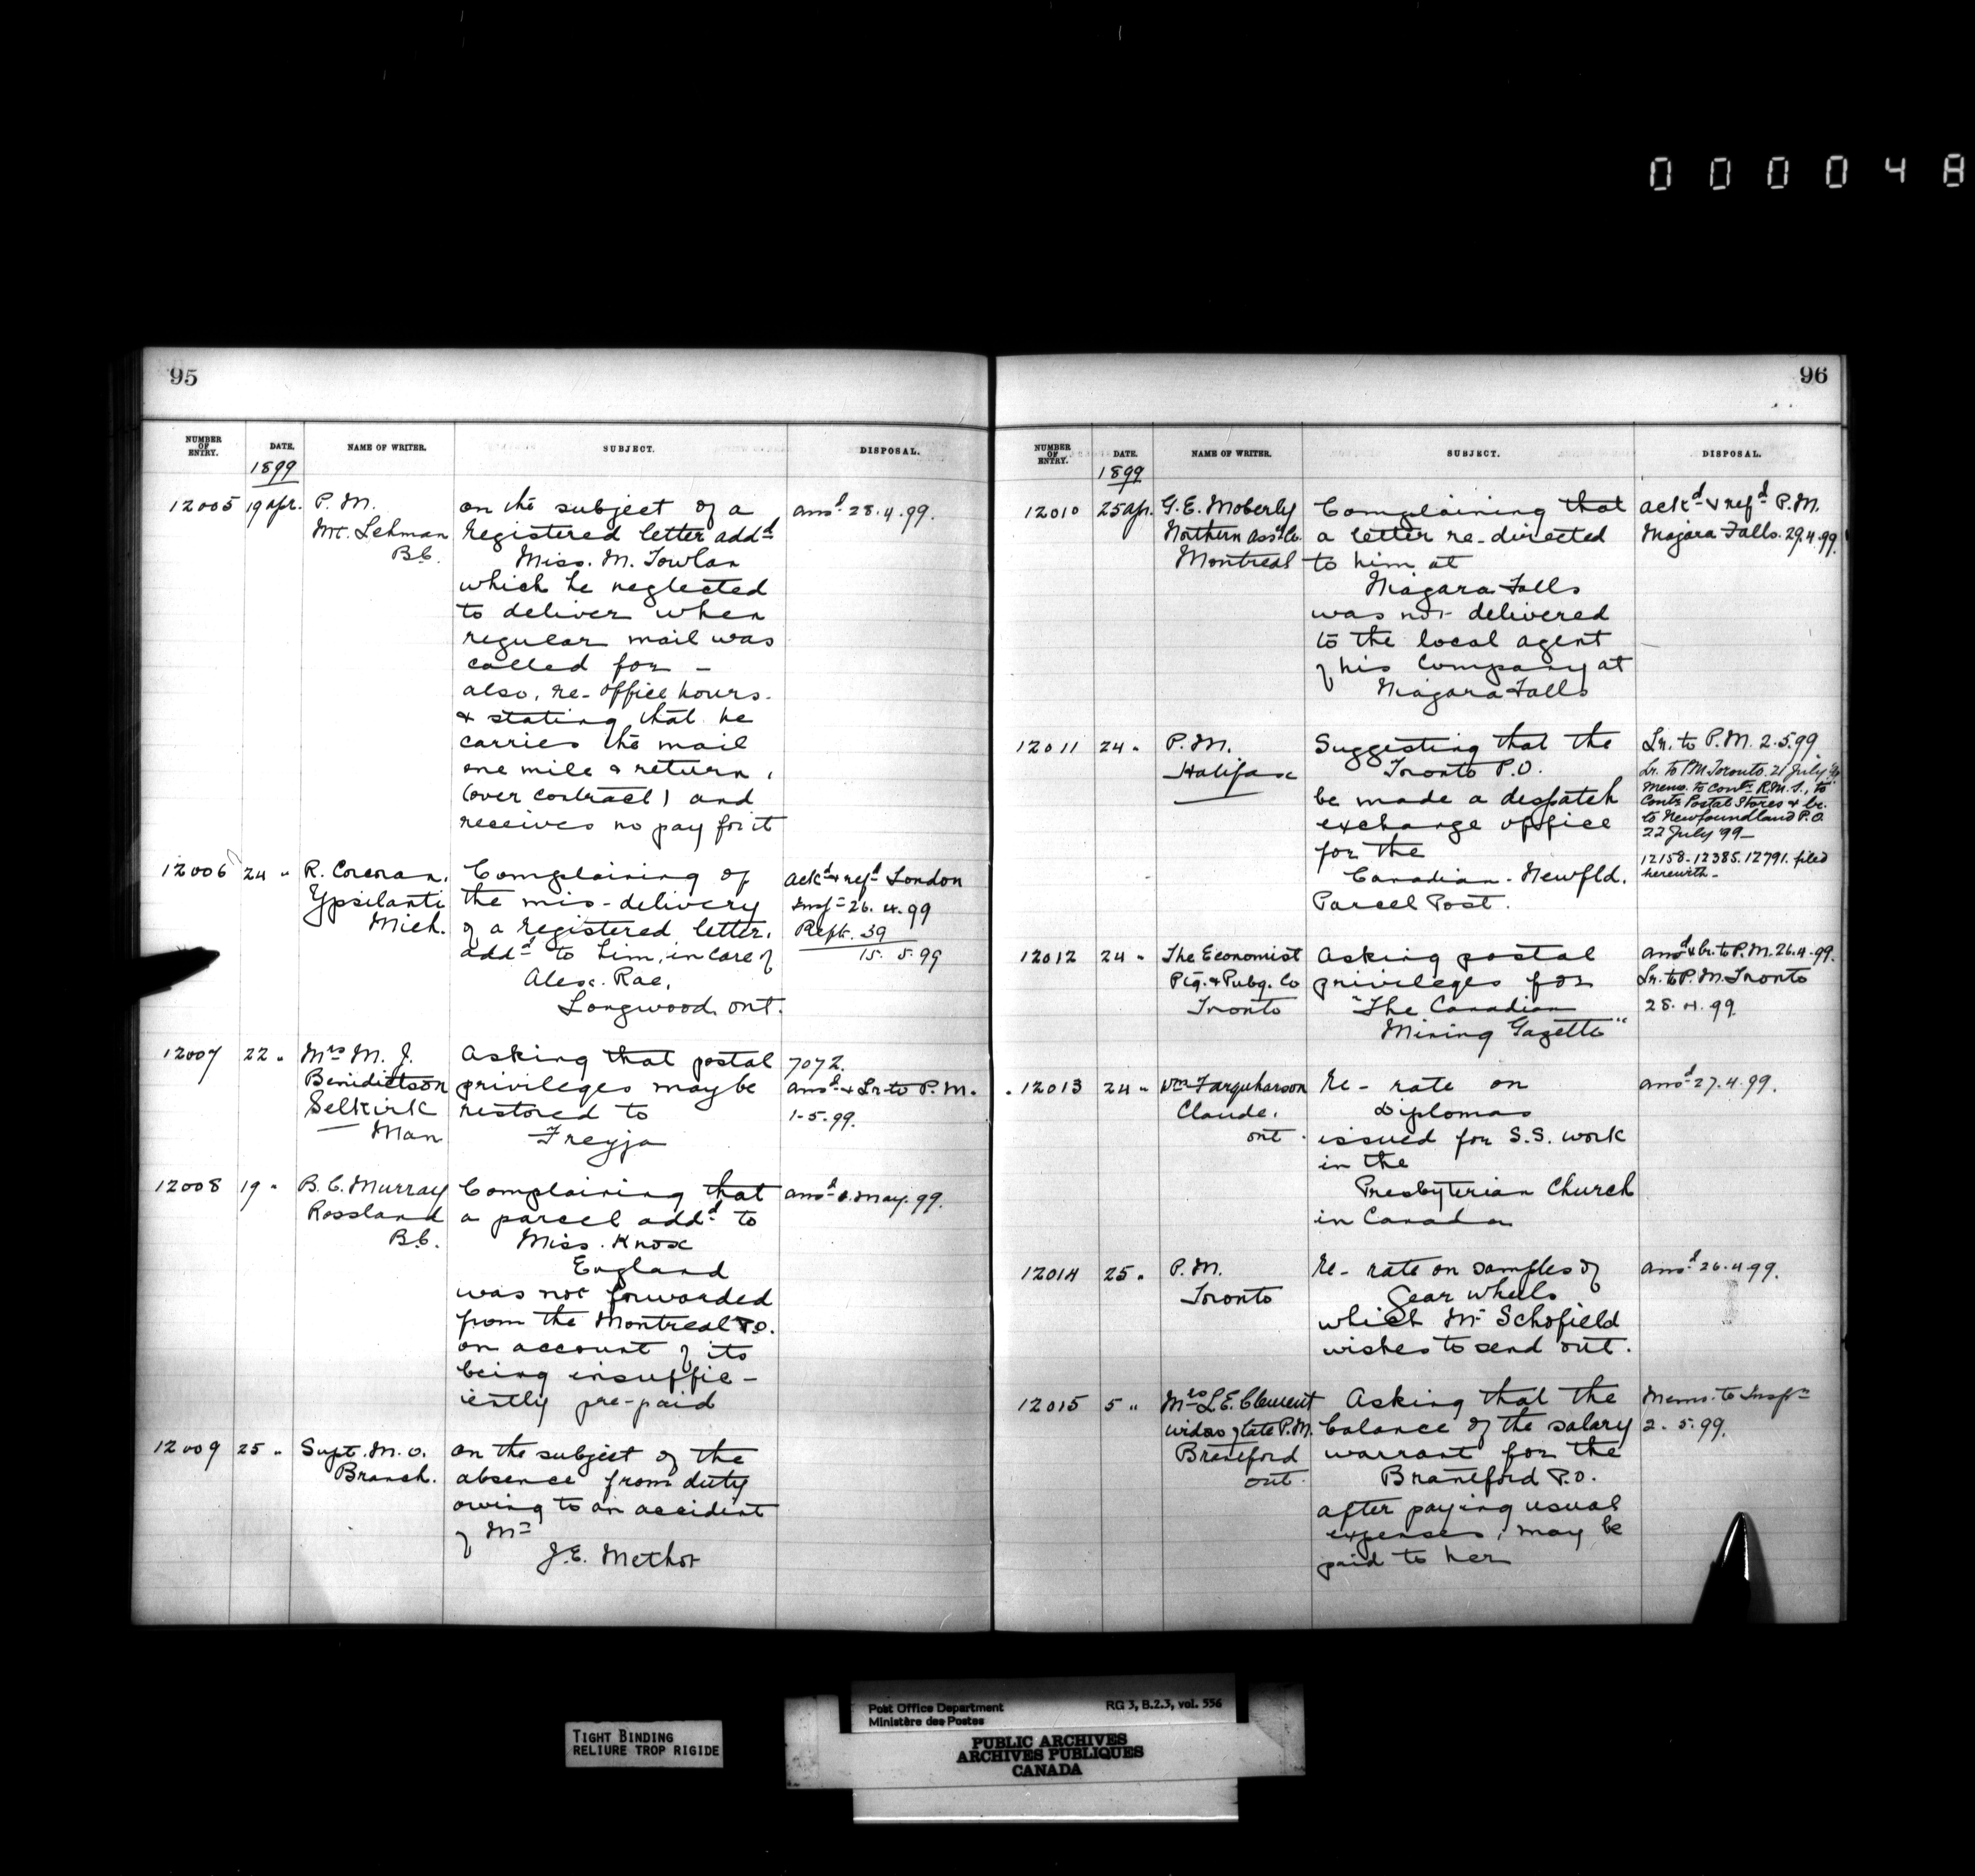 000048
95
NUMBER OF ENTRY. DATE. NAME OF WRITER. SUBJECT. DISPOSAL.
1899
12005 19 apr. P. M. on the subject of a ansd 28.4.99.
Mt. Lehman Registered letter addd
B.C. Miss. M. Towlan
which he neglected
to deliver when
regular mail was
called for –
also, re- office hours.
& stating that he
carries the mail
one mile & return,
(over contract) and
receives no pay for it
12006 24 " R. Corcoran, Complaining of ackd & refd London
Ypsilanti the mis-delivery Inspr 26.4.99
Mich. of a registered letter, Rept. 39
addd to him, in care of 15.5.99
Alex. Rae,
Longwood, ont.
12007 22 " Mrs M. J. Asking that postal 7072.
Benidictson privileges may be ansd & Lr. to P.M.
Selkirk restored to 1-5.99.
Man Freyja
12008 19 " B. C. Murray Complaining that ansd May. 99.
Rossland a parcel addd to
B.C. Miss. Knox
England
was not forwarded
from the Montreal P.O.
on account of its
being insuffic-
iently pre-paid
12009 25 " Supt. M. O. on the subject of the
Branch. absence from duty
owing to an accident
of Mr
J.E. Methot
96
NUMBER OF ENTRY. DATE. NAME OF WRITER. SUBJECT. DISPOSAL.
1899
12010 25 ap. G. E. Moberly Complaining that ackd & refd P.M.
Northern Assce Co. a letter re-directed Niagara Falls. 29.4.99.
Montreal to him at
Niagara Falls
was not delivered
to the local agent
of his Company at
Niagara Falls
12011 24 " P. M. Suggesting that the Lr. to P.M. 2.5.99.
Halifax Toronto P.O. Lr. to P.M. Toronto. 21 July
be made a despatch Memo. to Contr R.M.S., to
exchange office Contr Postal Stores & Lr.
for the to Newfoundland P.O.
22 July '99–
Canadian - Newfld. 12158-12385. 12791. filed
Parcel Post. herewith –
12012 24 " The Economist Asking postal ansd & Lr. to P.M. 26.4.99.
Ptg. & Pubg. Co privileges for Lr. to P.M. Toronto
Toronto "The Canadian 28.4.99.
Mining Gazette"
12013 24 " Wm Farquharson Re- rate on ansd 27.4.99.
Claude, Diplomas
ont. issued for S.S. work
in the
Presbyterian Church
in Canada
12014 25 " P. M. Re- rate on samples of ansd 26.4.99.
Toronto Gear Wheels
which Mr Schofield
wishes to send out.
12015 5 " Mrs L.E. Clement Asking that the Memo. to Inspr
widow of late P.M. balance of the salary 2.5.99.
Brantford warrant for the
ont. Brantford P.O.
after paying usual
expenses, may be
paid to her
TIGHT BINDING
RELIURE TROP RIGIDE
Post Office Department RG 3, B.2.3, vol. 556
Ministère des Postes
PUBLIC ARCHIVES
ARCHIVES PUBLIQUES
CANADA